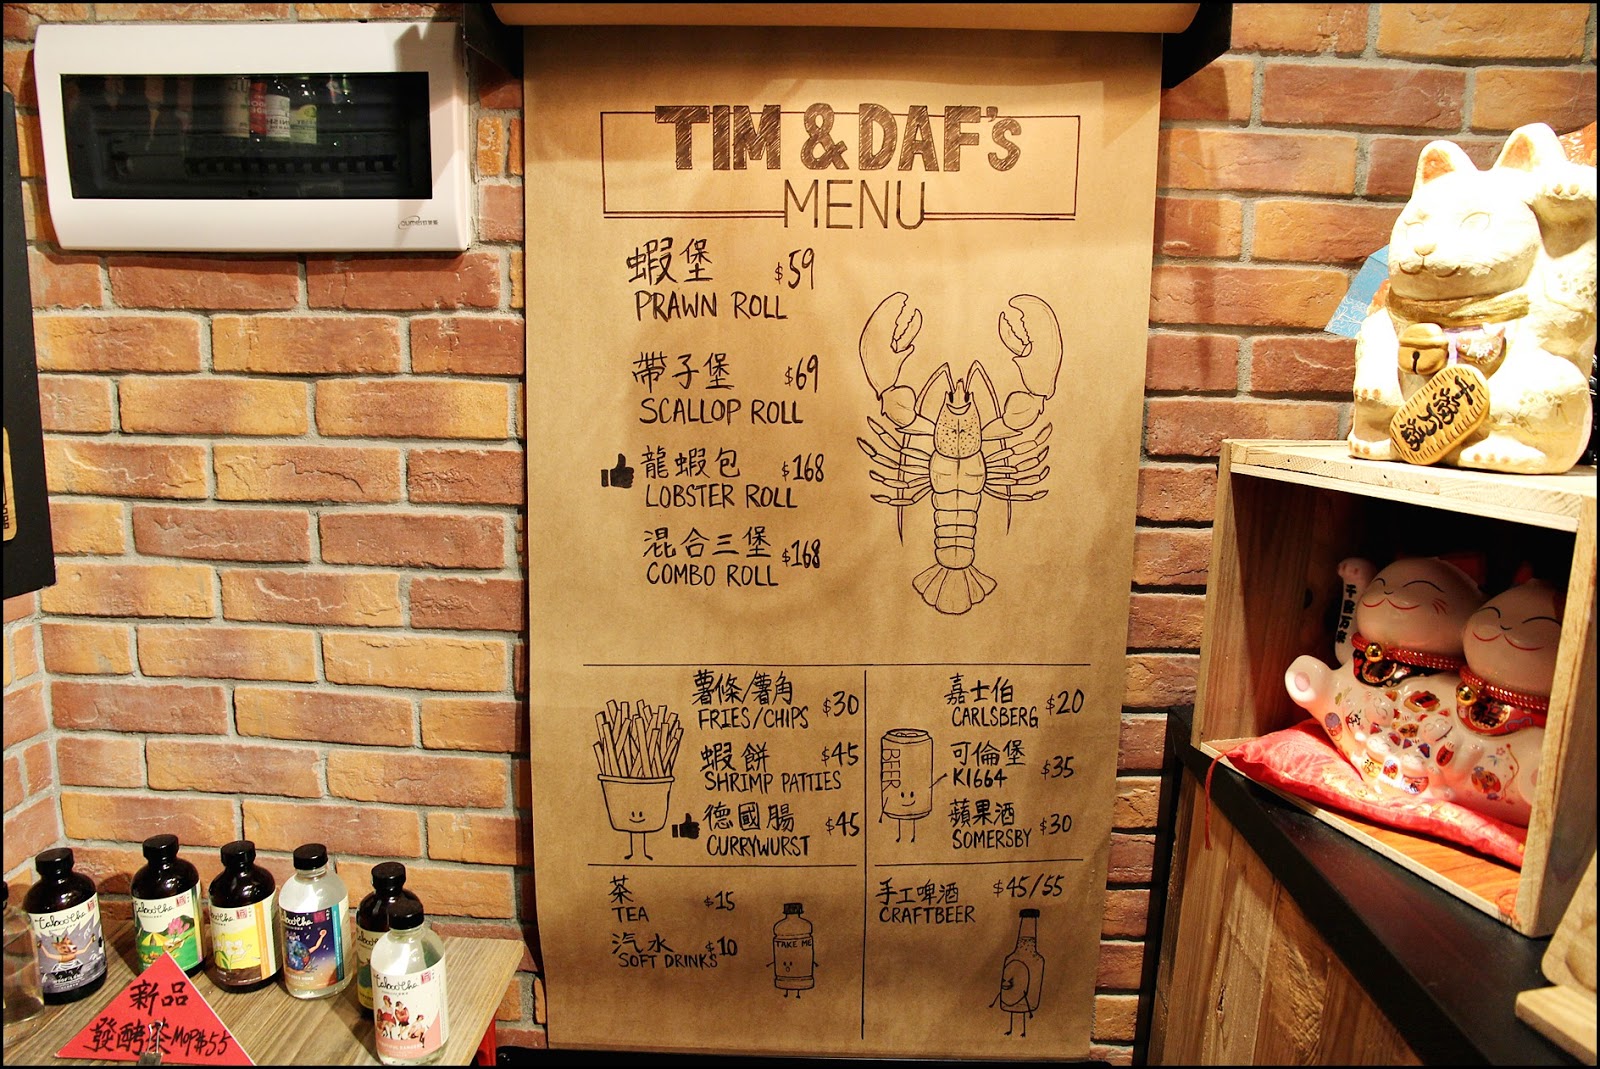 TIM & DAF's
MENU
蝦堡 $59
PRAWN ROLL
帶子堡 $69
SCALLOP ROLL
龍蝦包 $168
LOBSTER ROLL
混合三堡 $168
COMBO ROLL
薯條/薯角 $30
FRIES/CHIPS
蝦餅 $45
SHRIMP PATTIES
德國腸 $45
CURRYWURST
嘉士伯 $20
CARLSBERG
可倫堡 $35
K1664
蘋果酒 $30
SOMERSBY
BEER
茶 $15
TEA
汽水 $10
SOFT DRINKS
TAKE ME
手工啤酒 $45/55
CRAFTBEER
taboocha
taboocha
taboocha
taboocha
taboocha
新品
發酵茶 MOP$55
千客万来